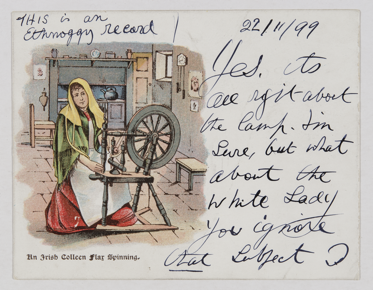 THIS is an
Ethnoggy record
22/11/99
Yes, its
all right about
the lamp. I'm
sure, but what
about the
White Lady
You ignore
that subject ?
An Irish Colleen Flax Spinning.